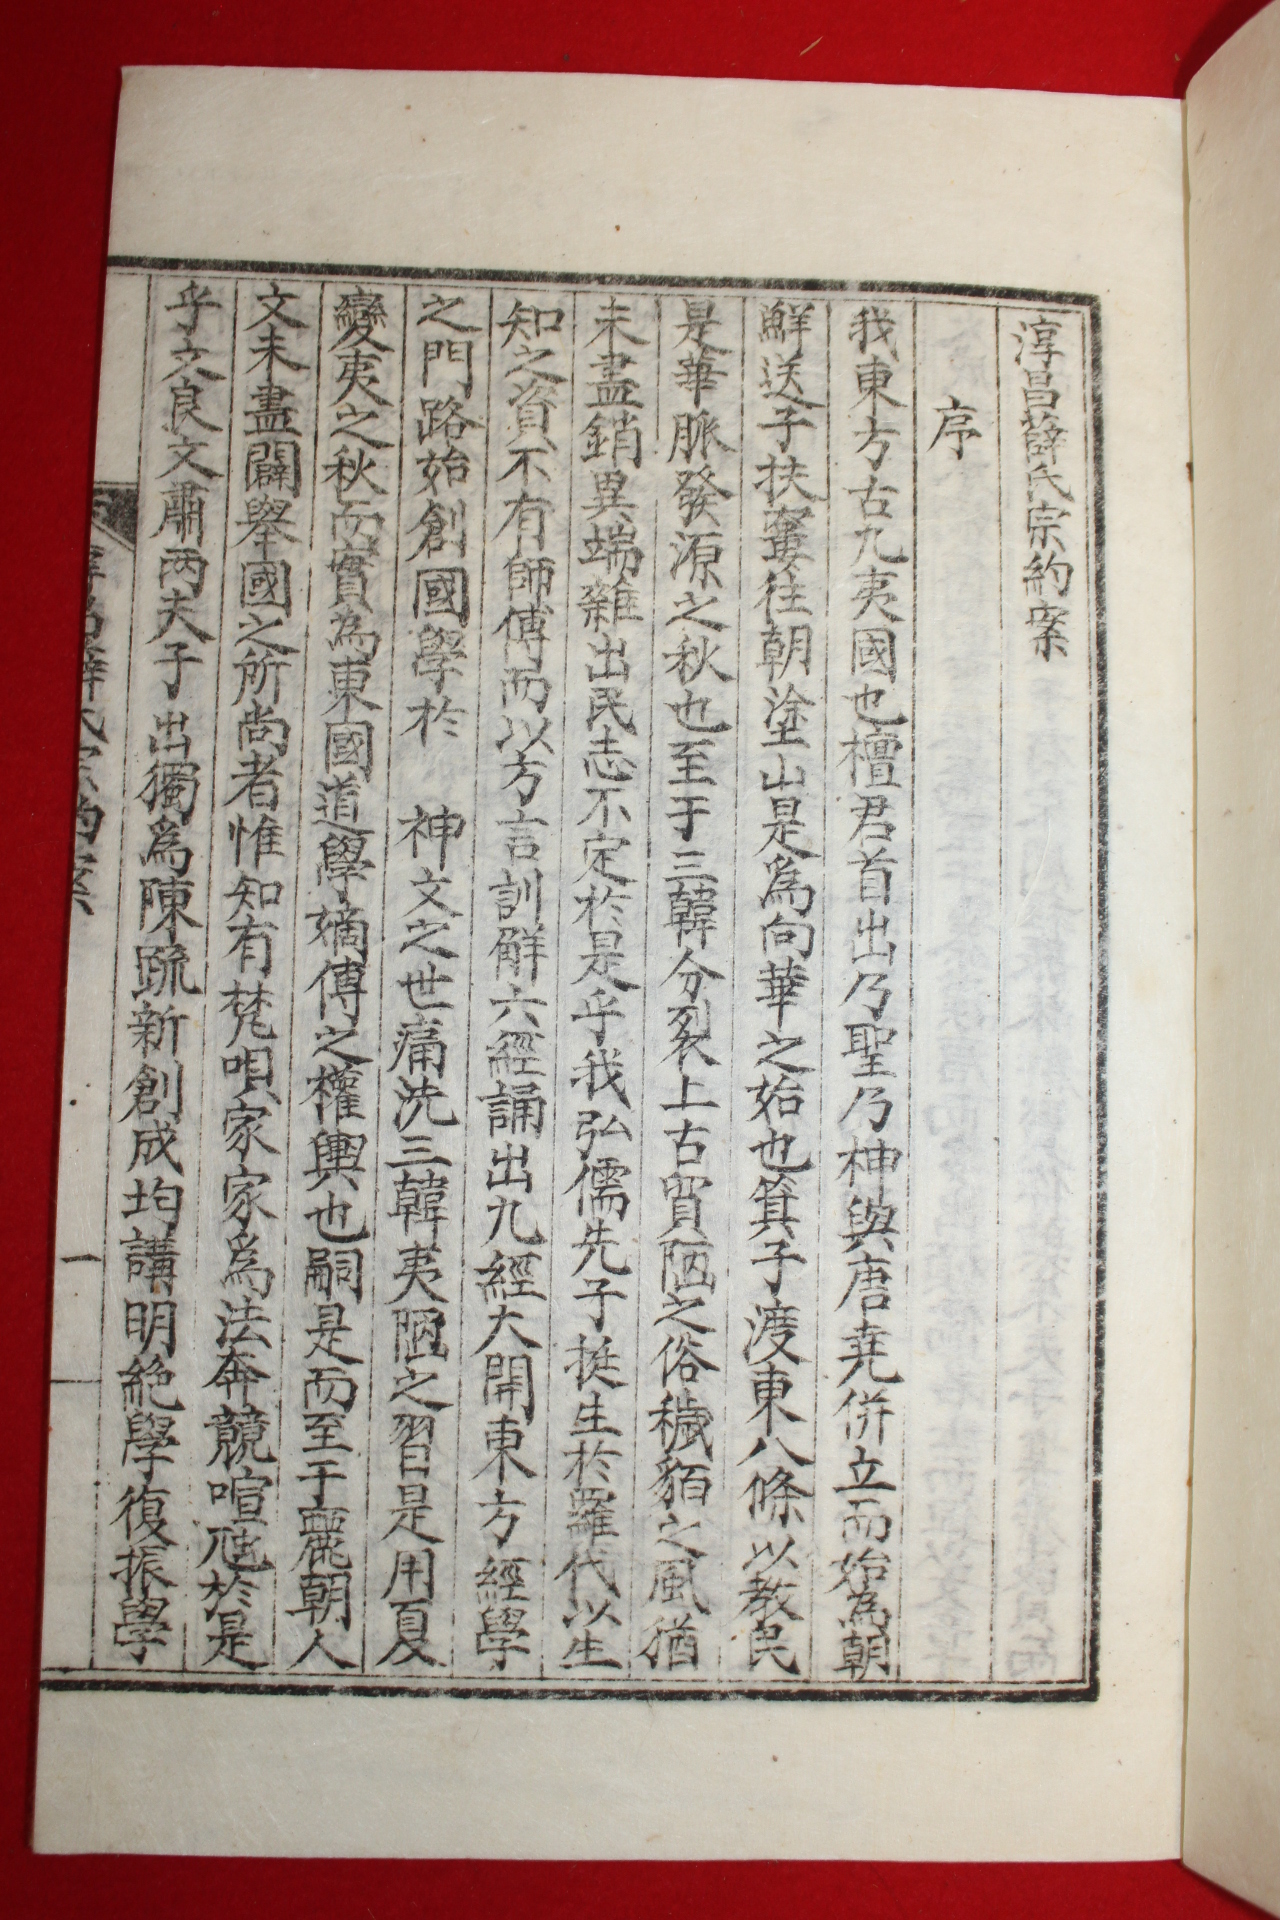 淳昌薛氏宗約案
序
我東方古九夷國也檀君首出乃聖乃神與唐堯併立而始為朝
鮮送子扶婁往朝塗山是爲向華之始也箕子渡東八條以敎民
是華脈發源之秋也至于三韓分裂上古貿陋之俗穢貊之風猶
未盡銷異端雜出民志不定於是乎我弘儒先子挺生於羅代以生
知之資不有師傅而以方言訓解六經誦出九經大開東方經學
之門路始創國學於　神文之世痛洗三韓夷陋之習是用夏
變夷之秋而實為東國道學嫡傳之權輿也嗣是而至于麗朝人
文未盡闢擧國之所尙者惟知有梵唄家家爲法奔競喧豗於是
乎文良文肅兩夫子出獨爲陳疏新創成均講明絶學復振學
淳昌薛氏宗約案
一